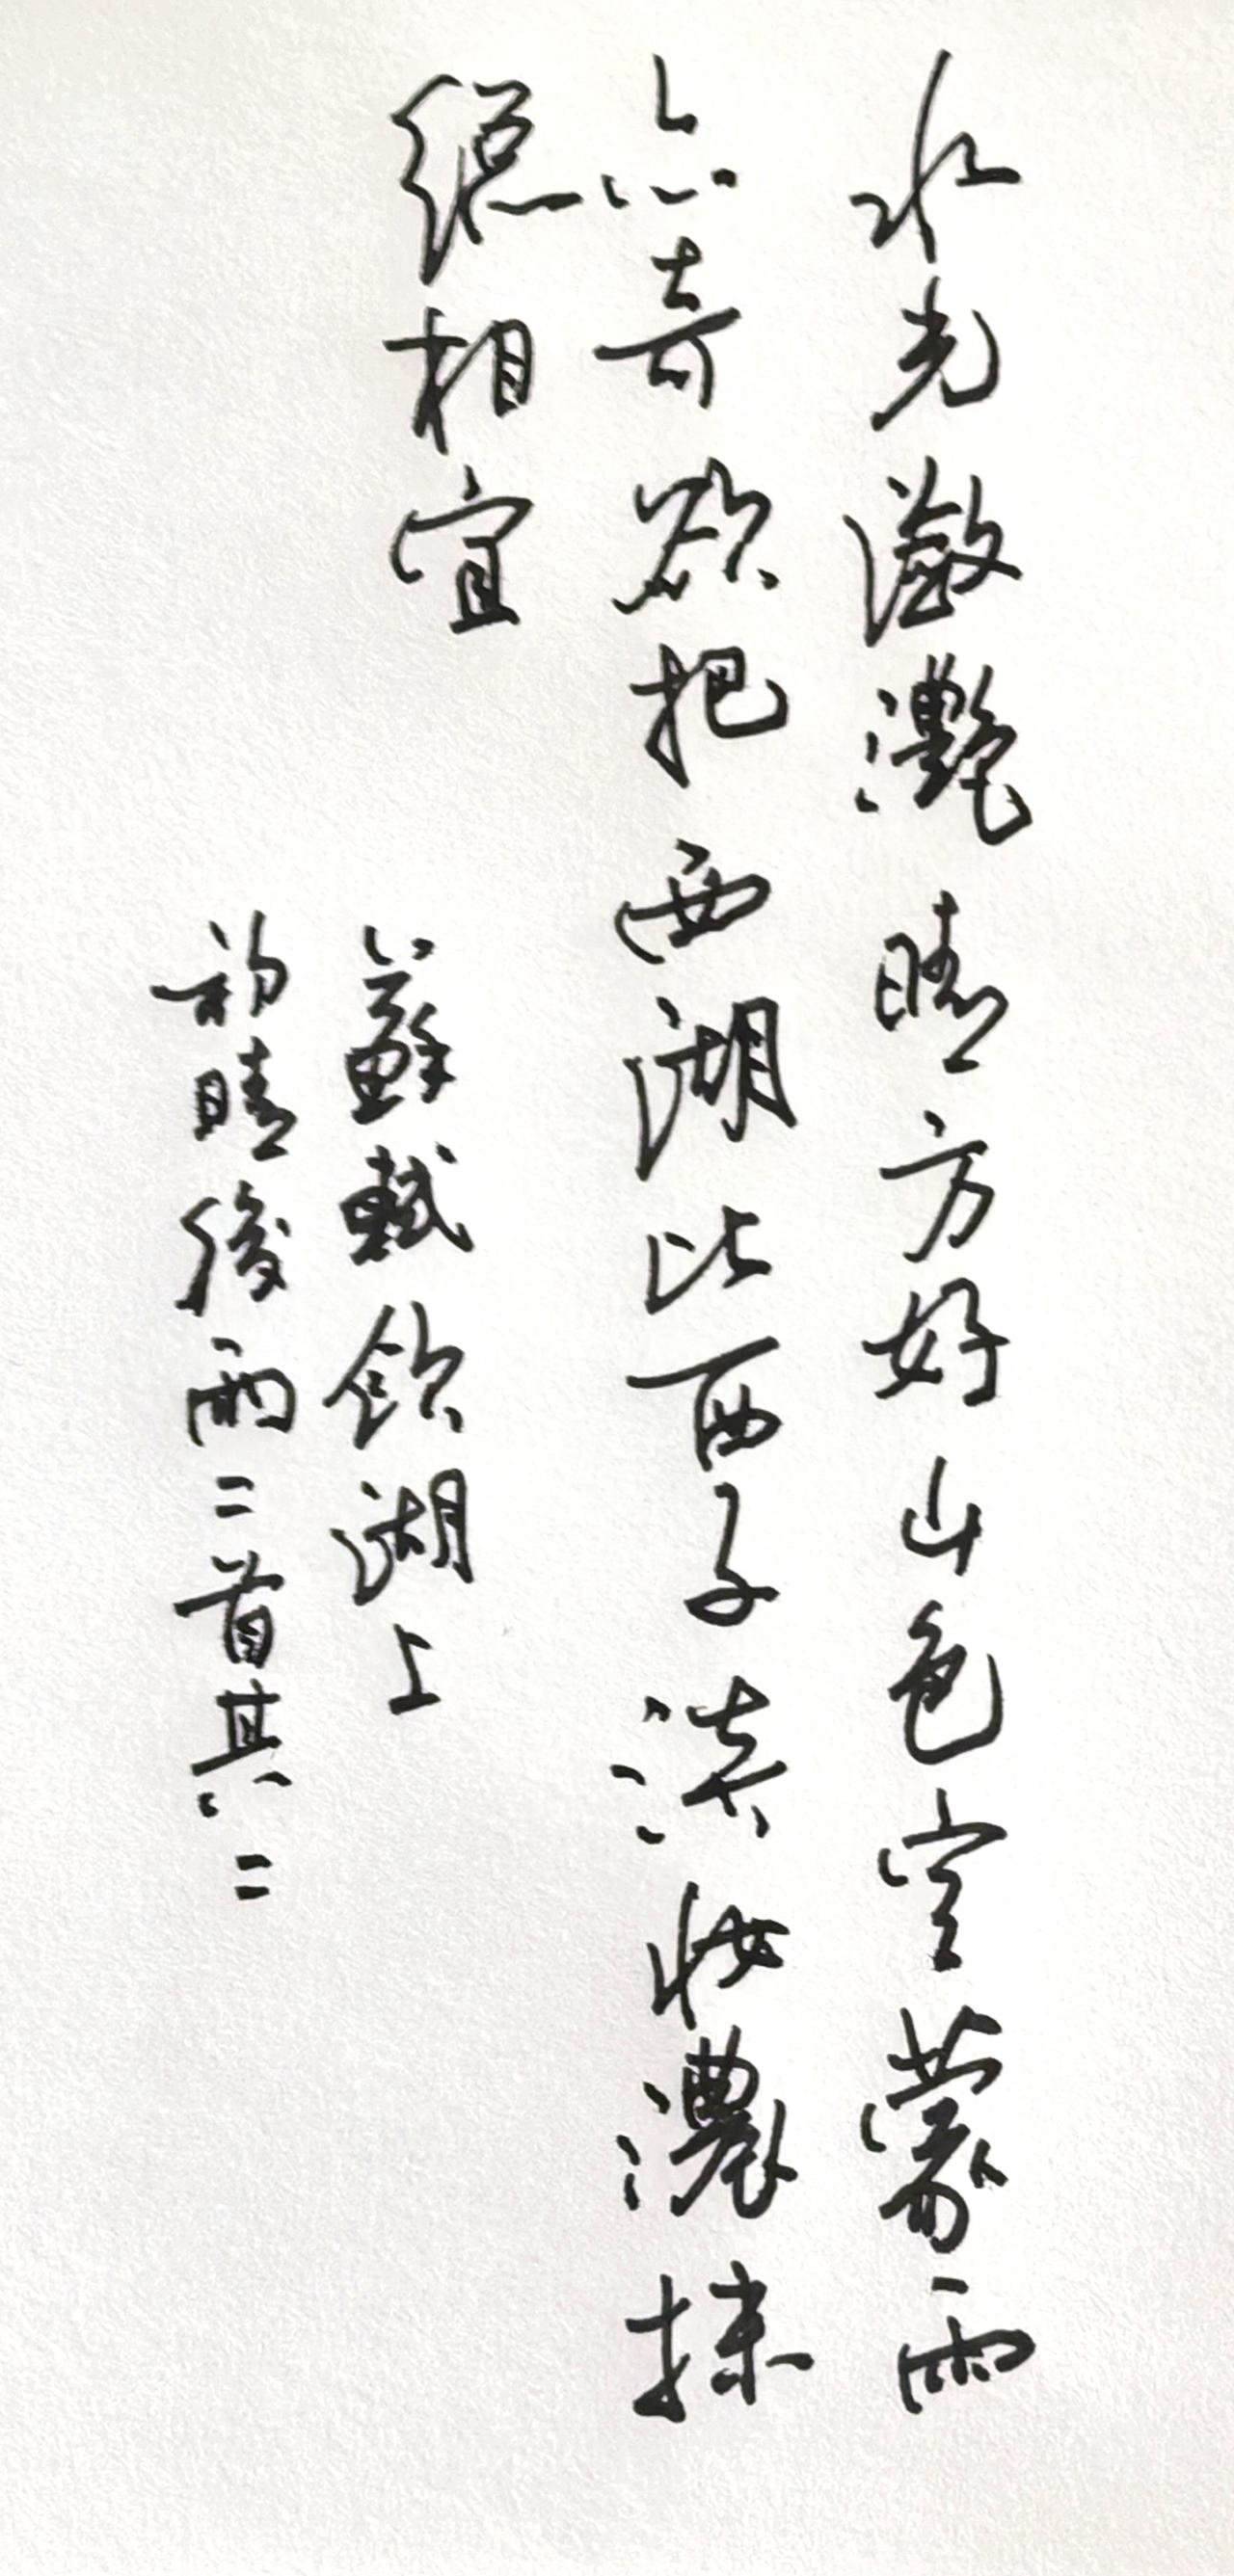 水光瀲灩晴方好山色空蒙雨
亦奇欲把西湖比西子淡妝濃抹
總相宜
蘇軾飲湖上
初晴後雨二首其二